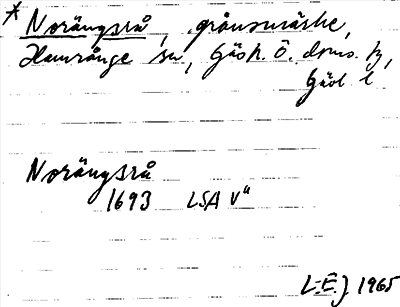 * Norängsrå, gränsmärke,
Hamrånge sn, Gästr. Ö. doms. tg,
Gävl. l
Norängsrå
1693 LSA V"
L.E.J. 1965